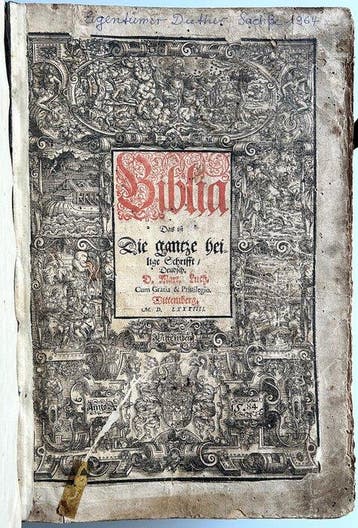 Eigentümer Diether Sachße 1964
Biblia
Das ist
Die gantze hei-
lige Schrifft /
Deudsch.
D. Mart. Luth.
Cum Gratia & Priuilegio.
Wittemberg.
M. D. LXXXIIII.
Anno
1584